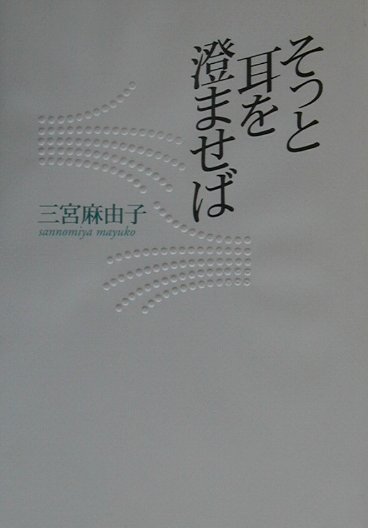 そっと
耳を
澄ませば
三宮麻由子
sannomiya mayuko